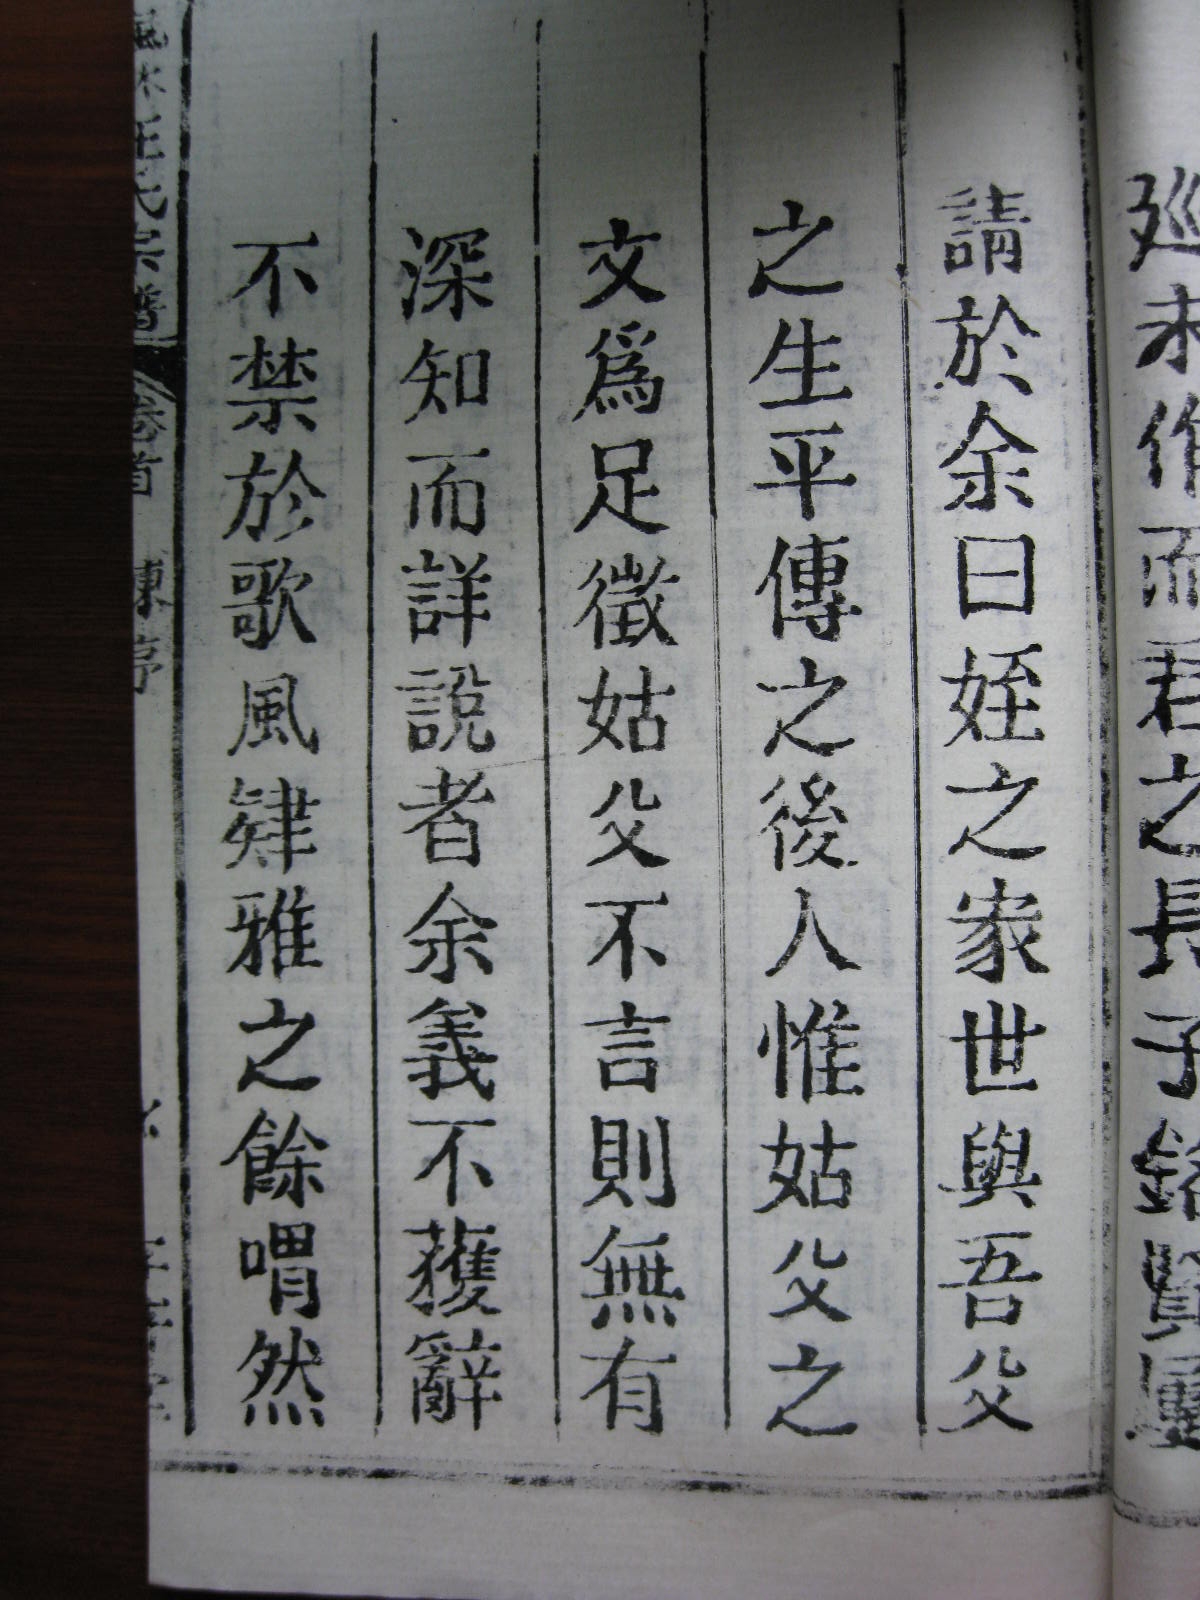 廵未作而君之長子
請於余曰姪之家世與吾父
之生平傳之後人惟姑父之
文爲足徵姑父不言則無有
深知而詳說者余義不獲辭
不禁於歌風肄雅之餘喟然
氏宗譜 卷首